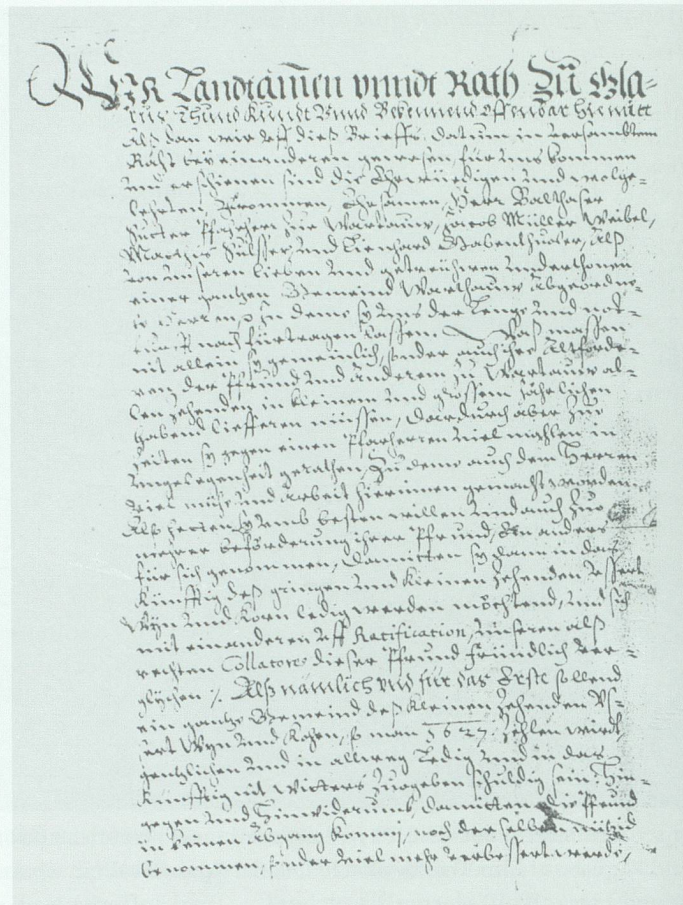 WIR Landtam̃en vnndt Rath Zů Gla-
rus Thund Kundt Vnnd Bekennend offenbar hiemitt
Alß dan wir vff dieß Brieffs datum in versambtem
Raht bey einanderen gewesen, für vns kommen
und erschienen sind die Ehrwürdigen und wolge-
lehrten, Frommen, Ehrsamen, Herr Balthasar
Pfarrherr zue Wartauw, Jacob Müller Weibel,
Mathis Sulsser, und Lienhard Gabenthuoler, Alß
von unseren lieben und getreüwen underthonen
einer gantzen Gemeind Warthauw Abgeordne-
te in deme sy uns der Lenge und not-
turfft nach fürtragen lassen. Waß massen
nit allein sy gemeinlich, sonder auch ihre Altforde-
ren der Pfrund und anderem zu Wartauw al-
len zehenden in kleinem und grossem Jährlichen
habend liefferen müssen, dardurch aber zue
zeiten sy gegen einen Pfarherren viel mahlen in
ungelegenheit gerathen, Zu deme auch dem Herren
viel müehe und Arbeit hierinnen gemacht worden.
Alß hetten sy umb besten willen und auch zuo
mehrer beförderung ihrer Pfrund, Ein anders
für sich genommen, damitten sy dann in das
künfftig deß gringen und kleinen zehenden
Wyn und Korn ledig werden möchtend, und sich
mit einanderen vff Ratification, unseren alß
rechten Collatoren dieser Pfrund fründlich ver-
glychen. Alß nämlich und für das Erste sollend
ein gantze Gemeind deß kleinen zehenden Vs-
sert Wyn und Korn, so man 1627 zehlen wird,
gentzlichen und in allweg ledig und in das
künfftig nit Witters zuogeben schuldig sein: Hin-
gegen und Hinwiderumb, damitten die Pfrund
in keinen Abgang kommj, noch der selben nützid
benommen, sonder viel mehr verbessert werde,